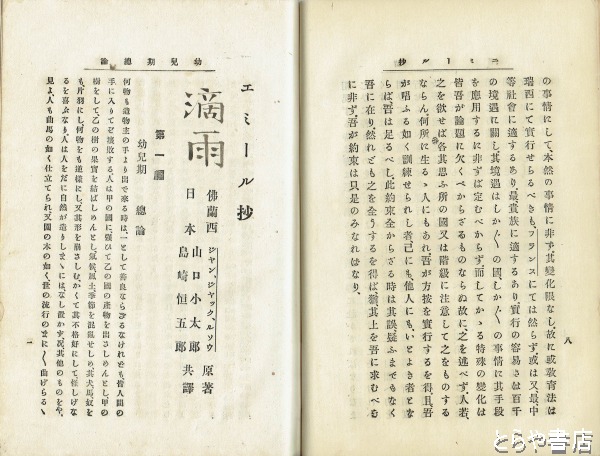 エミール抄
八
の事情にして、本然の事情に非ず、其變化限なし、故に或敎育法は
瑞西にて實行せらるべきも、フランスにては然らず、或は又、最中
等社會に適するあり、最貴族に適するあり、實行の容易さは百千
の境遇に關し、其境遇はしか〲の國、しか〲の事情に其手段
を應用するに非ずば定むべからず、而してかゝる特殊の變化は
皆吾が論題に欠くべからざるものならぬ故に、之を述べず、人若、
之を欲せば、各其思ふ所の國又は階級に注意して之をものする
ならん、何所に生るゝ人にもあれ、吾が方按を實行するを得、且、吾
が唱ふる如く訓練せられし者、己にも、他人にも、いとよき者とな
らば吾は足るべし、此約束全からざる時は其誤、疑ふまでもなく
吾に在り、然れども之を全うするを得ば、猶其上を吾に求むべき
に非ず、吾が約束は只是のみなればなり、
幼兒期總論
エミール抄
滴雨
佛蘭西 ジャン、ジャック、ルソウ 原著
日本 山口小太郎
島崎恒五郎 共譯
第一編
幼兒期 總論
何物も造物主の手より出で來る時は、一として善良ならざるなけれども、皆人間の
手に入りてぞ壞敗する、人は甲の國に强ひて乙の國の產物を出さしめんとし、甲の
樹をして乙の樹の果實を結ばしめんとし、氣候、風土、季節を混亂せしめ、其犬馬奴を
も片羽にし、何物をも逆樣にし、又其形を崩さしむ、かくて其不格好にして怪しげな
るを喜ぶなり、人は人をだに自然が造りしまゝには、なし置かず、况其他のものをや、
見よ、人も曲馬の如く仕立てられ、又園の木の如く、世の流行のまに〱曲げらるゝ
一
とらや書店